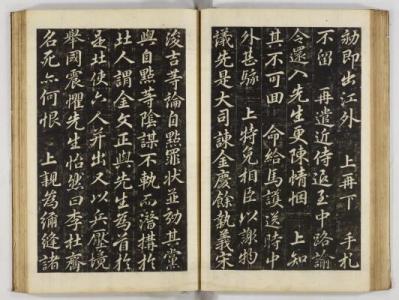 劾即出江外　上再下　手札
不留　再遣近侍追至中路諭
令還入先生更陳情悃　上知
其不可回　命給馬護送時中
外甚駭　上特免相臣以謝物
議先是大司諫金慶餘執義宋
浚吉等論自點罪狀並劾其黨
與自點等陰謀不軌而潛搆於
北人謂金文正與先生為首於
是北使六人並出又以兵壓境
舉國震懼先生怡然曰李杜齊
名死亦何恨　上親為彌縫諸